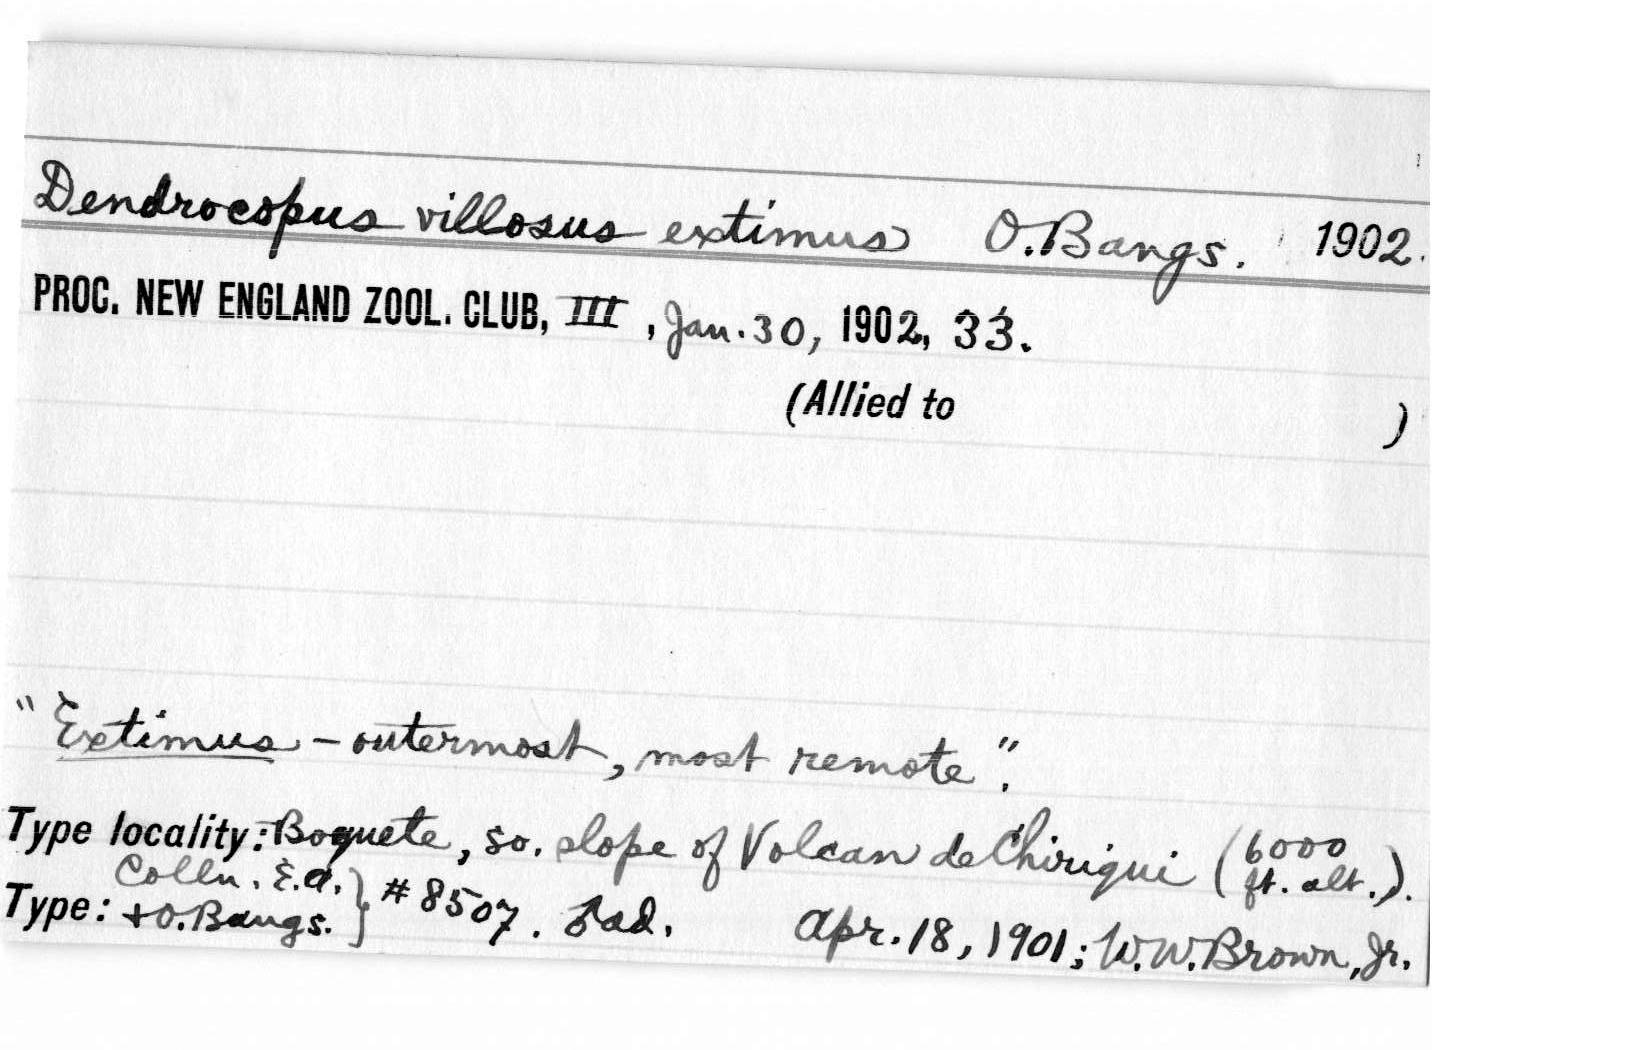 Dendrocopus villosus extimus O. Bangs. 1902.
PROC. NEW ENGLAND ZOOL. CLUB, III, Jan. 30, 1902, 33.
(Allied to )
"Extimus – outermost, most remote".
Type locality: Boquete, so. slope of Volcan de Chiriqui (6000 ft. alt.).
Type: Colln. E.A. + O. Bangs. } #8507. ♂ ad. Apr. 18, 1901; W.W. Brown, Jr.